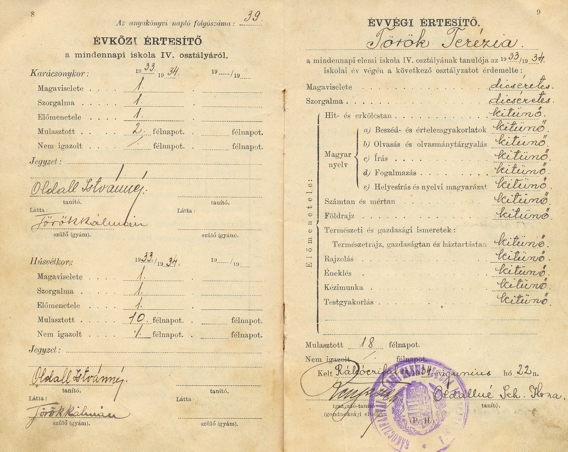 8
Az anyakönyvi napló folyószáma: 39.
ÉVKÖZI ÉRTESITŐ
a mindennapi iskola IV. osztályáról.
Karácsonykor: 1933/1934. 19...../19.....
Magaviselete 1
Szorgalma 1
Előmenetele 1
Mulasztott 2 félnapot. félnapot.
Nem igazolt félnapot. félnapot.
Jegyzet:
Oldall Istvánné
tanító. tanító.
Látta: Látta:
Török Kálmán
szülő (gyám). szülő (gyám).
Húsvétkor: 1933/1934. 19...../19.....
Magaviselete 1
Szorgalma 1
Előmenetele 1
Mulasztott 10 félnapot. félnapot.
Nem igazolt félnapot. félnapot.
Jegyzet:
Oldall Istvánné
tanító. tanító.
Látta: Látta:
Török Kálmán
szülő (gyám). szülő (gyám).
9
ÉVVÉGI ÉRTESITŐ.
Török Terézia.
a mindennapi elemi iskola IV. osztályának tanulója az 1933/1934.
iskolai év végén a következő osztályzatot érdemelte:
Magaviselete dicséretes
Szorgalma dicséretes.
Előmenetele:
Hit- és erkölcstan kitünő.
Magyar nyelv
a) Beszéd- és értelemgyakorlatok kitünő.
b) Olvasás és olvasmánytárgyalás kitünő.
c) Írás kitünő.
d) Fogalmazás kitünő.
e) Helyesírás és nyelvi magyarázat kitünő.
Számtan és mértan kitünő.
Földrajz kitünő.
Természeti és gazdasági ismeretek:
Természetrajz, gazdaságtan és háztartástan kitünő.
Rajzolás kitünő.
Éneklés kitünő.
Kézimunka kitünő.
Testgyakorlás kitünő.
Mulasztott 18 félnapot.
Nem igazolt félnapot.
Kelt junius hó 22n.
P. H.
Oldallné Sch. Ilona.
igazgató-tanító tanító.